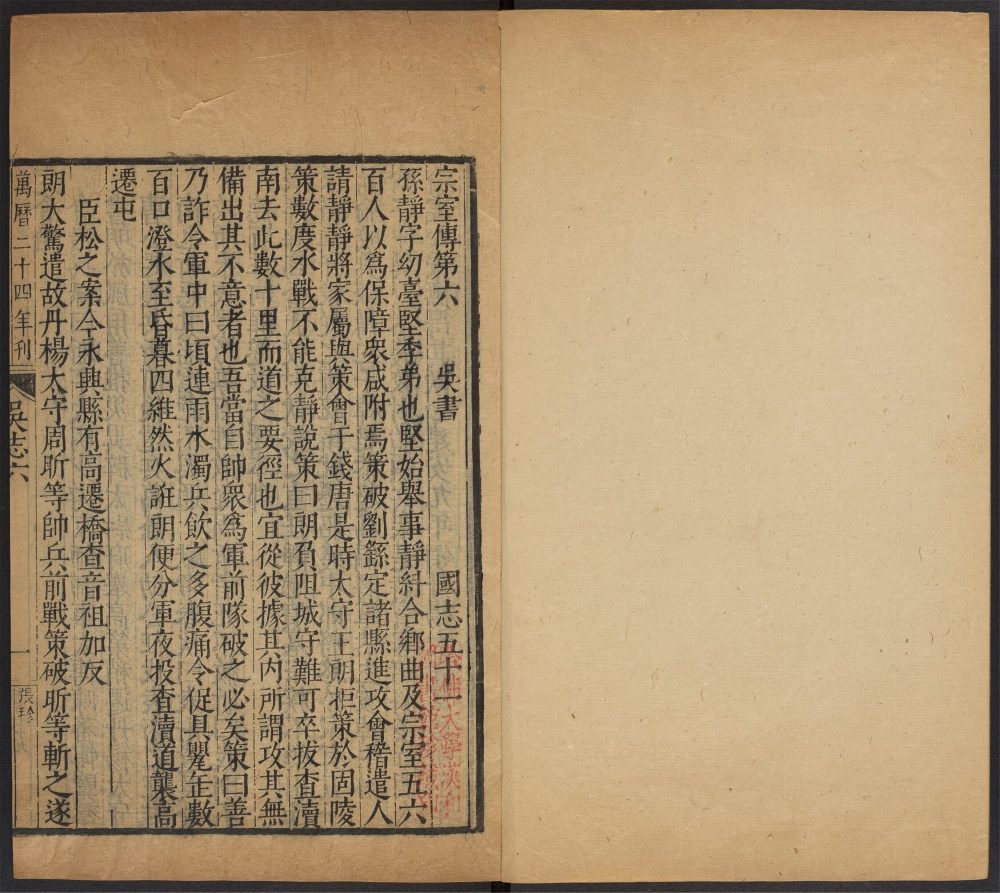 宗室傳第六 吳書 國志五十一
孫靜字幼臺堅季弟也堅始舉事靜糾合鄉曲及宗室五六
百人以爲保障衆咸附焉策破劉繇定諸縣進攻會稽遣人
請靜靜將家屬與策會于錢唐是時太守王朗拒策於固陵
策數度水戰不能克靜說策曰朗負阻城守難可卒拔查瀆
南去此數十里而道之要徑也宜從彼據其內所謂攻其無
備出其不意者也吾當自帥衆爲軍前隊破之必矣策曰善
乃詐令軍中曰頃連雨水濁兵飲之多腹痛令促具甖缶數
百口澄水至昏暮四維然火誑朗便分軍夜投查瀆道襲高
遷屯
臣松之案今永興縣有高遷橋查音祖加反
朗大驚遣故丹楊太守周昕等帥兵前戰策破昕等斬之遂
萬曆二十四年刊
吳志六
一
張珍